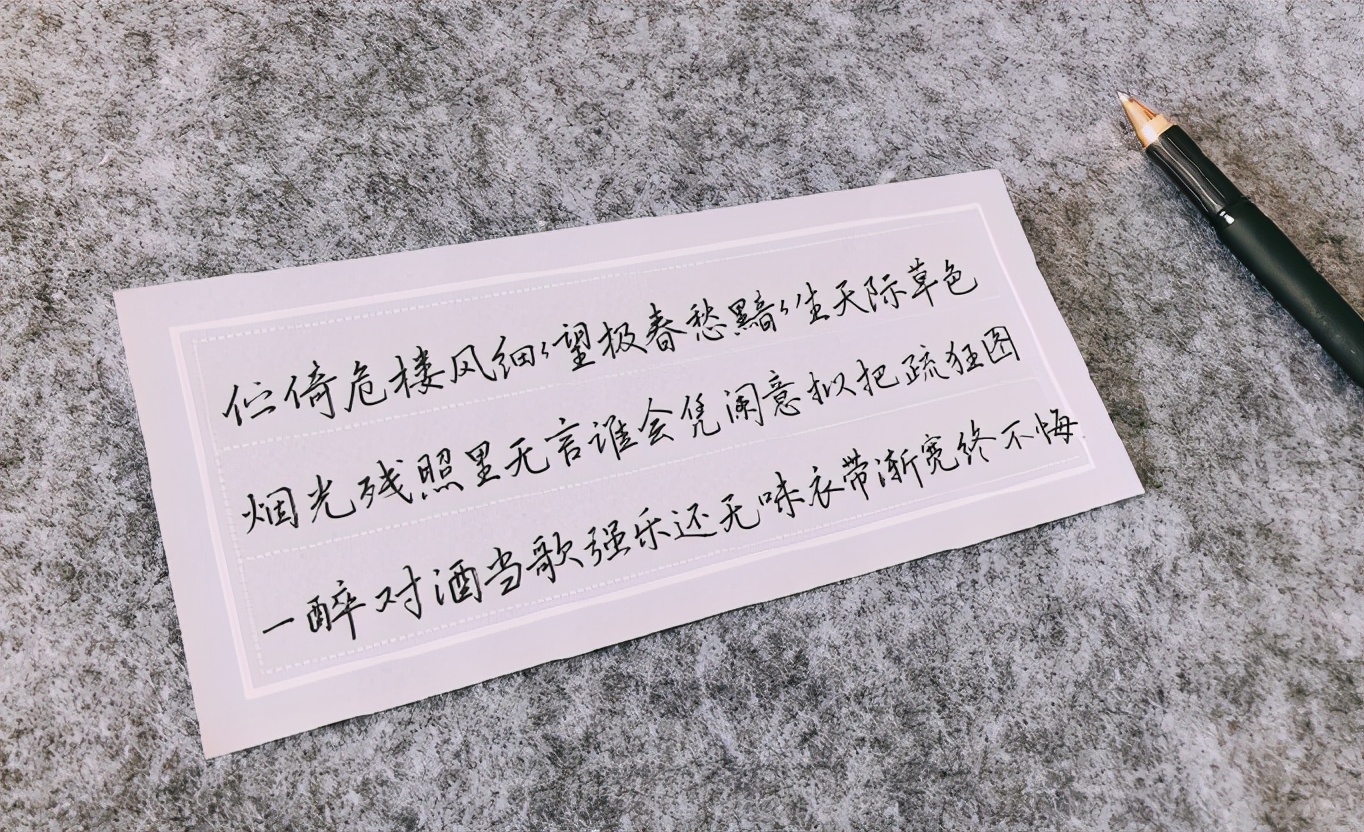 伫倚危楼风细々望极春愁黯々生天际草色
烟光残照里无言谁会凭阑意拟把疏狂图
一醉对酒当歌强乐还无味衣带渐宽终不悔